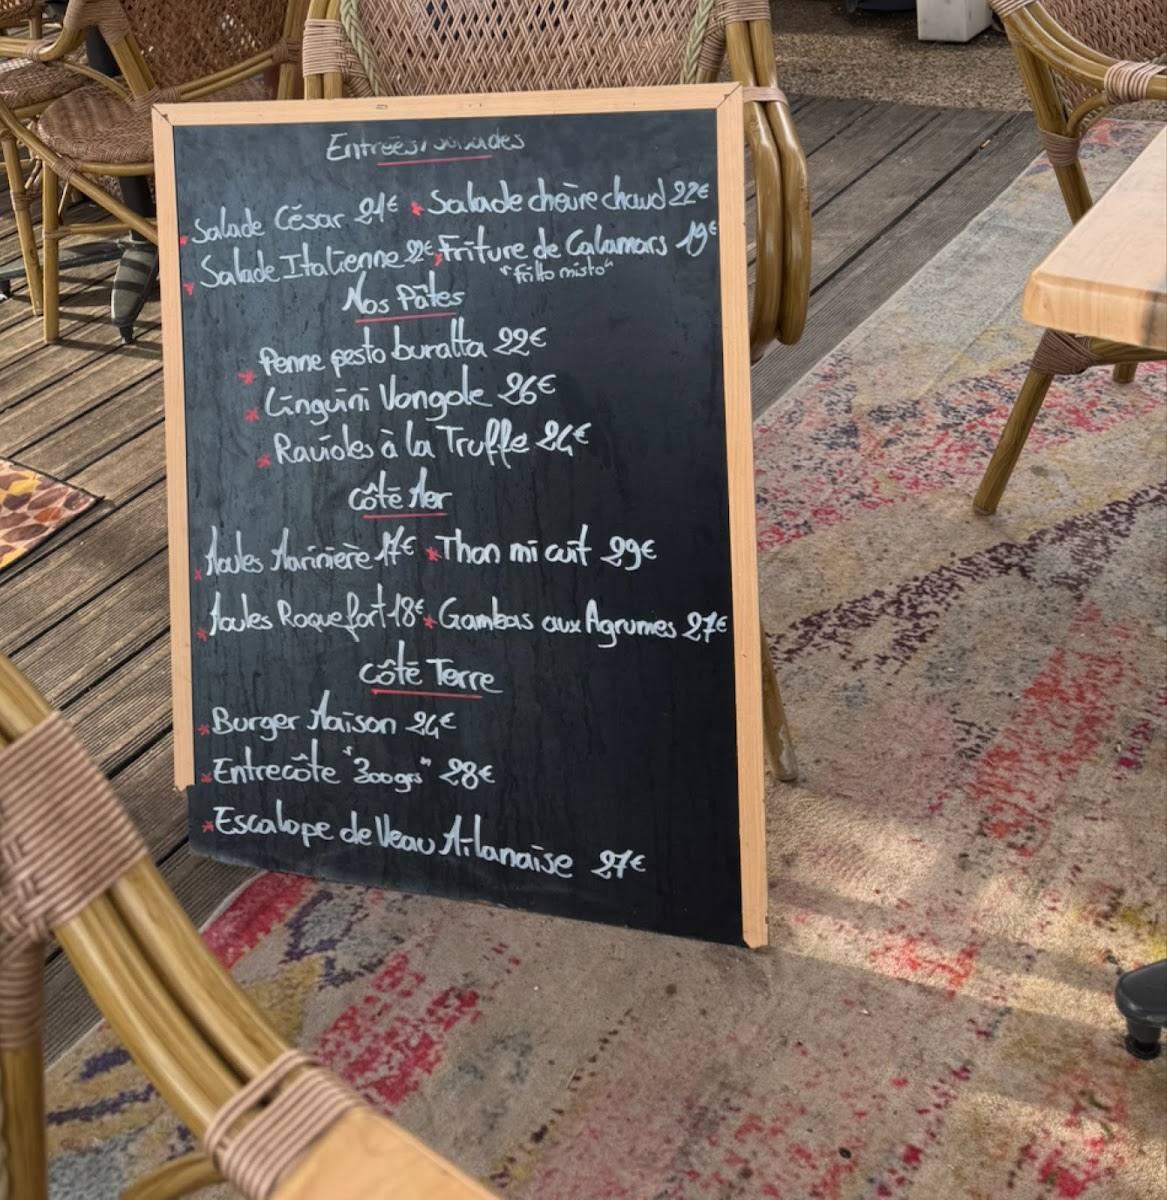 Entrées/salades
* Salade César 21€ * Salade chèvre chaud 22€
* Salade Italienne 22€ * Friture de Calamars 19€
"fritto misto"
Nos Pâtes
* Penne pesto buratta 22€
* Linguini Vongole 26€
* Ravioles à la Truffe 24€
Côté Mer
* Moules Marinière 17€ * Thon mi cuit 29€
* Moules Roquefort 18€ * Gambas aux Agrumes 27€
Côté Terre
* Burger Maison 24€
* Entrecôte "300grs" 28€
* Escalope de Veau Milanaise 27€